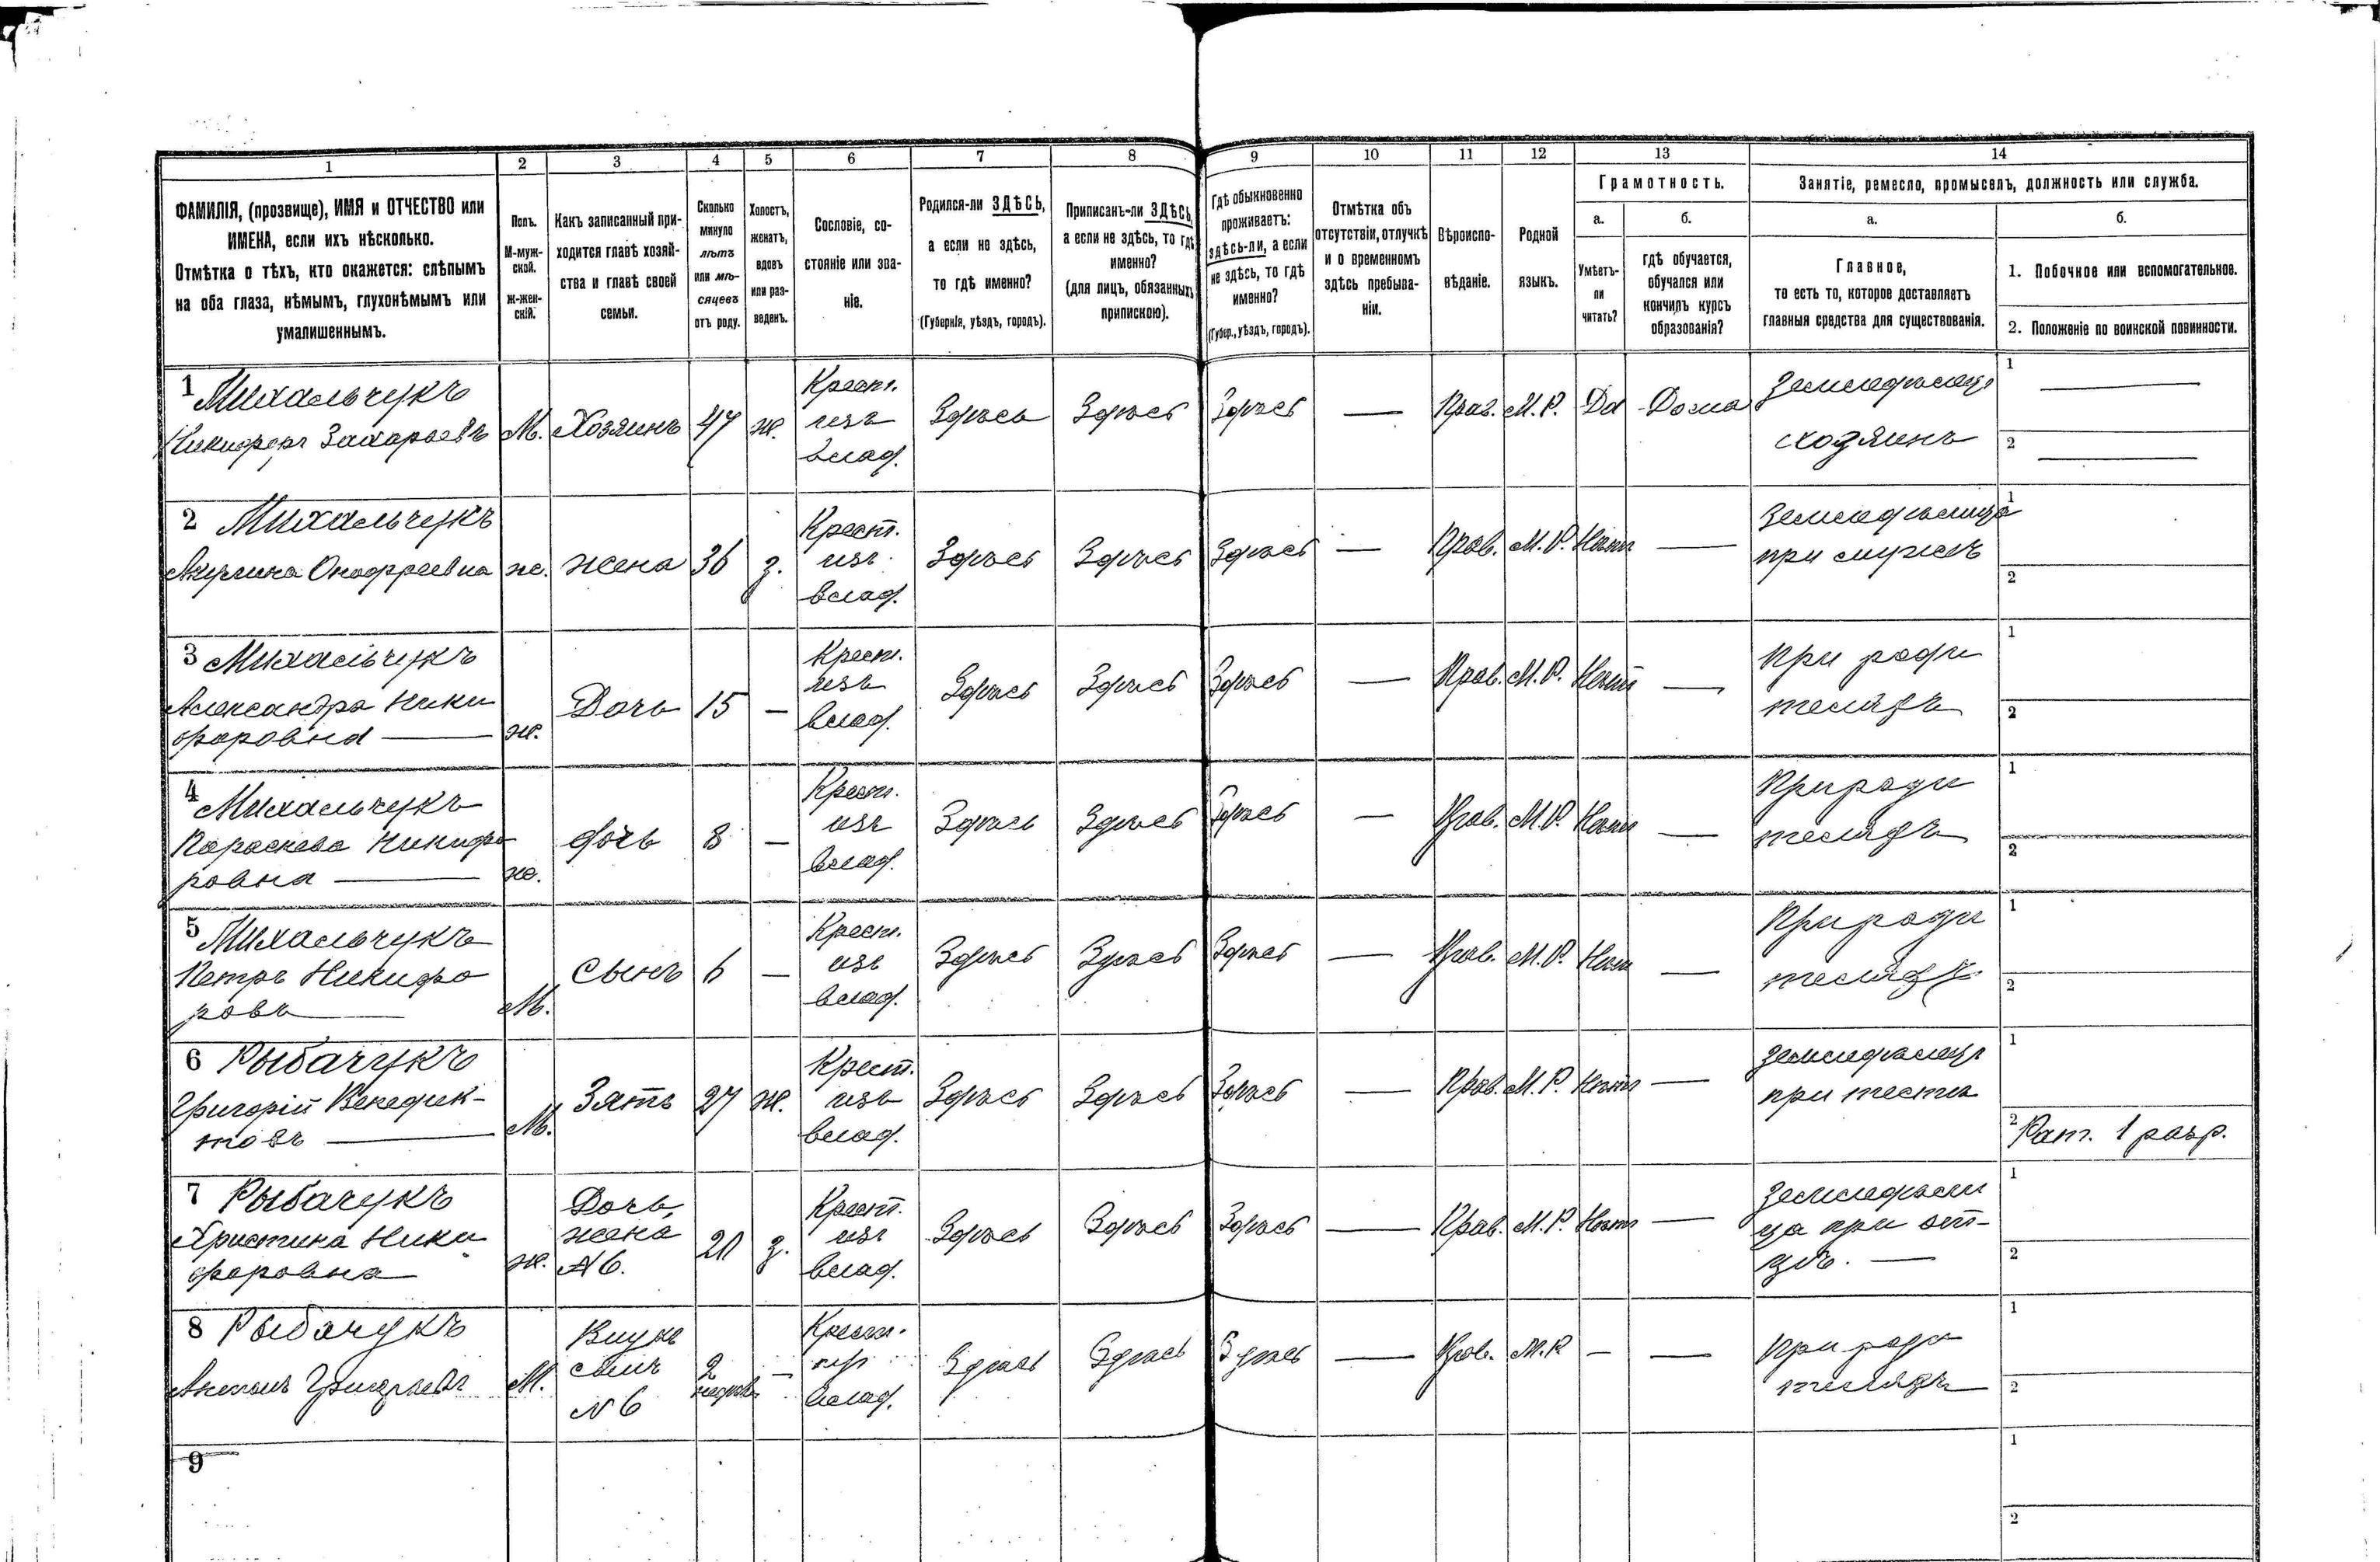 1 2 3 4 5 6 7 8 9 10 11 12 13 14
ФАМИЛІЯ, (прозвище), ИМЯ и ОТЧЕСТВО или
ИМЕНА, если ихъ нѣсколько.
Отмѣтка о тѣхъ, кто окажется: слѣпымъ
на оба глаза, нѣмымъ, глухонѣмымъ или
умалишеннымъ.
Полъ.
М-муж-
ской.
Ж-жен-
скій.
Какъ записанный при-
ходится главѣ хозяй-
ства и главѣ своей
семьи.
Сколько
минуло
лѣтъ
или мѣ-
сяцевъ
отъ роду.
Холостъ,
женатъ,
вдовъ
или раз-
веденъ.
Сословіе, со-
стояніе или зва-
ніе.
Родился-ли ЗДѢСЬ,
а если не здѣсь,
то гдѣ именно?
(Губернія, уѣздъ, городъ).
Приписанъ-ли ЗДѢСЬ,
а если не здѣсь, то гдѣ
именно?
(для лицъ, обязанныхъ
припискою).
Гдѣ обыкновенно
проживаетъ:
здѣсь-ли, а если
не здѣсь, то гдѣ
именно?
(Губер., уѣздъ, городъ).
Отмѣтка объ
отсутствіи, отлучкѣ
и о временномъ
здѣсь пребыва-
ніи.
Вѣроиспо-
вѣданіе.
Родной
языкъ.
Грамотность.
а.
Умѣетъ-
ли
читать?
б.
гдѣ обучается,
обучался или
кончилъ курсъ
образованія?
Занятіе, ремесло, промыселъ, должность или служба.
а.
Главное,
то есть то, которое доставляетъ
главныя средства для существованія.
б.
1. Побочное или вспомогательное.
2. Положеніе по воинской повинности.
1 Михальчукъ
Никифоръ Захарьевъ
М.
Хозяинъ
47
ж.
Крест.
изъ
влад.
Здѣсь
Здѣсь
Здѣсь
—
Прав.
М. Р.
Да
Дома
Земледѣлецъ
хозяинъ
1 —
2 —
2 Михальчукъ
Акулина Онофреевна
ж.
жена
36
з.
Крест.
изъ
влад.
Здѣсь
Здѣсь
Здѣсь
—
Прав.
М. Р.
Нѣтъ
—
Земледѣлица
при мужѣ
1
2
3 Михальчукъ
Александра Ники
форовна —
ж.
Дочь
15
—
Крест.
изъ
влад.
Здѣсь
Здѣсь
Здѣсь
—
Прав.
М. Р.
Нѣтъ
—
При роди
теляхъ
1
2
4 Михальчукъ
Параскева Никифо
ровна —
ж.
дочь
8
—
Крест.
изъ
влад.
Здѣсь
Здѣсь
Здѣсь
—
Прав.
М. Р.
Нѣтъ
—
При роди
теляхъ
1
2
5 Михальчукъ
Петръ Никифо
ровъ —
М.
Сынъ
6
—
Крест.
изъ
влад.
Здѣсь
Здѣсь
Здѣсь
—
Прав.
М. Р.
Нѣтъ
—
При роди
теляхъ
1
2
6 Рыбачукъ
Григорій Венедик-
товъ —
М.
Зять
27
ж.
Крест.
изъ
влад.
Здѣсь
Здѣсь
Здѣсь
—
Прав.
М. Р.
Нѣтъ
—
Земледѣлецъ
при тестѣ
1
2 Рат. 1 разр.
7 Рыбачукъ
Христина Ники
форовна
ж.
Дочь,
жена
№6.
20
з.
Крест.
изъ
влад.
Здѣсь
Здѣсь
Здѣсь
—
Прав.
М. Р.
Нѣтъ
—
Земледѣли
ца при от-
цѣ. —
1
2
8 Рыбачукъ
Антонъ Григорьевъ
М.
Внукъ
сынъ
№ 6
2
—
Крест.
изъ
влад.
Здѣсь
Здѣсь
Здѣсь
—
Прав.
М. Р.
—
—
При роди
теляхъ
1
2
9
1
2